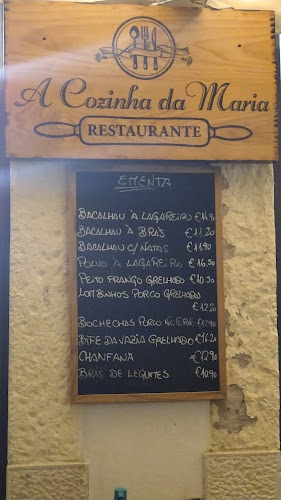 A Cozinha da Maria
RESTAURANTE
EMENTA
BACALHAU À LAGAREIRO
BACALHAU À BRÁS €11.20
BACALHAU C/NATAS €11.90
POLVO À LAGAREIRO €16.50
PEITO FRANGO GRELHADO €10.50
LOMBINHOS PORCO GRELHADO
€12.20
BOCHECHAS PORCO NO FORNO
BIFE DA VAZIA GRELHADO €16.20
CHANFANA €12.90
BRÁS DE LEGUMES €10.90